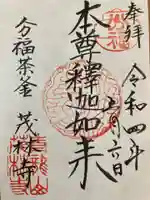 奉拝
令和四年
六月六日
本尊釋迦如来
分福茶釜
茂林寺